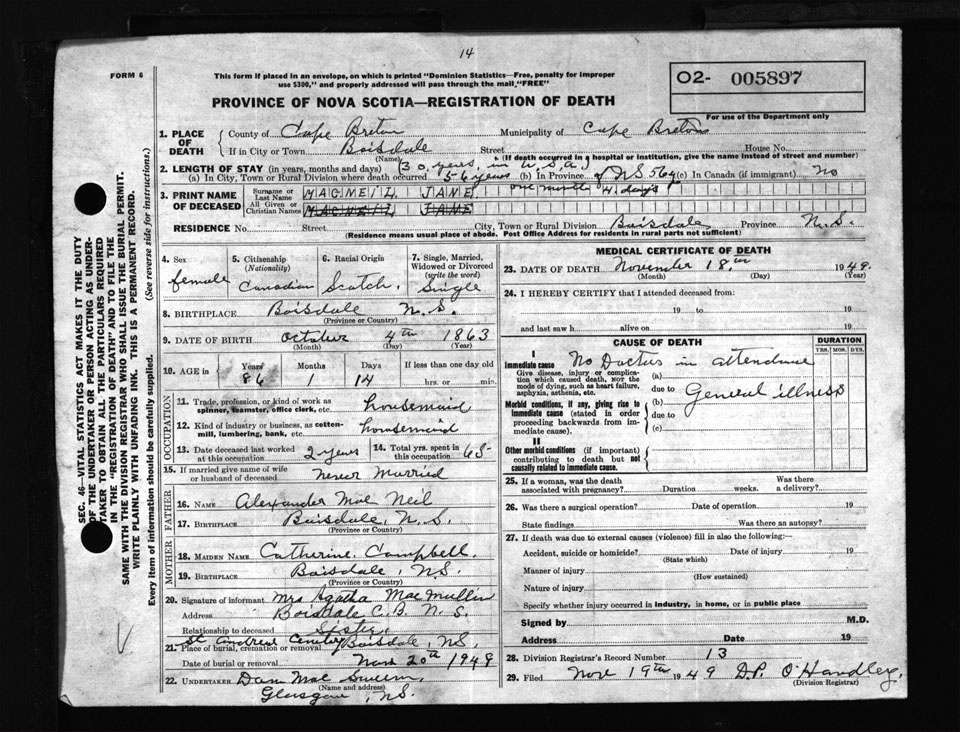 14
FORM 6
This form if placed in an envelope, on which is printed "Dominion Statistics—Free, penalty for improper
use $300," and properly addressed will pass through the mail, "FREE"
O2- 005897
For use of the Department only
PROVINCE OF NOVA SCOTIA—REGISTRATION OF DEATH
1. PLACE OF DEATH { County of Cape Breton Municipality of Cape Breton
If in City or Town Boisdale Street House No.
(Name) (If death occurred in a hospital or institution, give the name instead of street and number)
2. LENGTH OF STAY (in years, months and days) (30 years, in U.S.A.)
(a) In City, Town or Rural Division where death occurred 56 years (b) In Province of NS 56y (c) In Canada (if immigrant) No
one month 4 days
3. PRINT NAME OF DECEASED { Surname or Last Name MACNEIL JANE
All Given or Christian Names MACNEIL JANE
RESIDENCE No. Street City, Town or Rural Division Boisdale Province N.S.
(Residence means usual place of abode. Post Office Address for residents in rural parts not sufficient)
4. Sex female
5. Citizenship (Nationality) Canadian
6. Racial Origin Scotch
7. Single, Married, Widowed or Divorced (write the word) Single
8. BIRTHPLACE Boisdale N.S.
(Province or Country)
9. DATE OF BIRTH October 4th 1863
(Month) (Day) (Year)
10. AGE in { Years 86 Months 1 Days 14 If less than one day old hrs. or min.
OCCUPATION
11. Trade, profession, or kind of work as spinner, teamster, office clerk, etc. housemaid
12. Kind of industry or business, as cotten-mill, lumbering, bank, etc. housemaid
13. Date deceased last worked at this occupation 2 years
14. Total yrs. spent in this occupation 65
15. If married give name of wife or husband of deceased never married
FATHER
16. NAME Alexander Mac Neil
17. BIRTHPLACE Boisdale, N.S.
(Province or Country)
MOTHER
18. MAIDEN NAME Catherine Campbell.
19. BIRTHPLACE Boisdale, NS.
(Province or Country)
20. Signature of informant Mrs Agatha MacMullin
Address Boisdale C.B. N.S.
Relationship to deceased Sister
21. Place of burial, cremation or removal St Andrews Cemetery Boisdale, NS,
Date of burial or removal Nov 20th 1949
22. UNDERTAKER Dan Mac
(Name and address)
NS.
MEDICAL CERTIFICATE OF DEATH
23. DATE OF DEATH November 18th 1949.
(Month) (Day) (Year)
24. I HEREBY CERTIFY that I attended deceased from:
19 to 19
and last saw h alive on 19
CAUSE OF DEATH DURATION
YRS. MOS. DYS.
I
Immediate cause No Doctors in attendance
Give disease, injury or complication which caused death, NOT the mode of dying, such as heart failure, asphyxia, asthenia, etc.
(a)
due to
Morbid conditions, if any, giving rise to immediate cause (stated in order proceeding backwards from immediate cause).
(b) General illness
due to
(c)
II
Other morbid conditions (if important) contributing to death but not causally related to immediate cause.
25. If a woman, was the death associated with pregnancy? Duration weeks. Was there a delivery?
26. Was there a surgical operation? Date of operation 19
State findings Was there an autopsy?
27. If death was due to external causes (violence) fill in also the following:
Accident, suicide or homicide? Date of injury 19
(State which)
Manner of injury
(How sustained)
Nature of injury
Specify whether injury occurred in industry, in home, or in public place
Signed by M.D.
Address Date 19
28. Division Registrar's Record Number 13
29. Filed Nov 19th 1949 D.P. O'Handley.
(Division Registrar)
SEC. 46—VITAL STATISTICS ACT MAKES IT THE DUTY
OF THE UNDERTAKER OR PERSON ACTING AS UNDER-
TAKER TO OBTAIN ALL THE PARTICULARS REQUIRED
IN THE "REGISTRATION OF DEATH" AND TO FILE THE
SAME WITH THE DIVISION REGISTRAR WHO SHALL ISSUE THE BURIAL PERMIT.
WRITE PLAINLY WITH UNFADING INK. THIS IS A PERMANENT RECORD.
Every item of information should be carefully supplied. (See reverse side for instructions.)